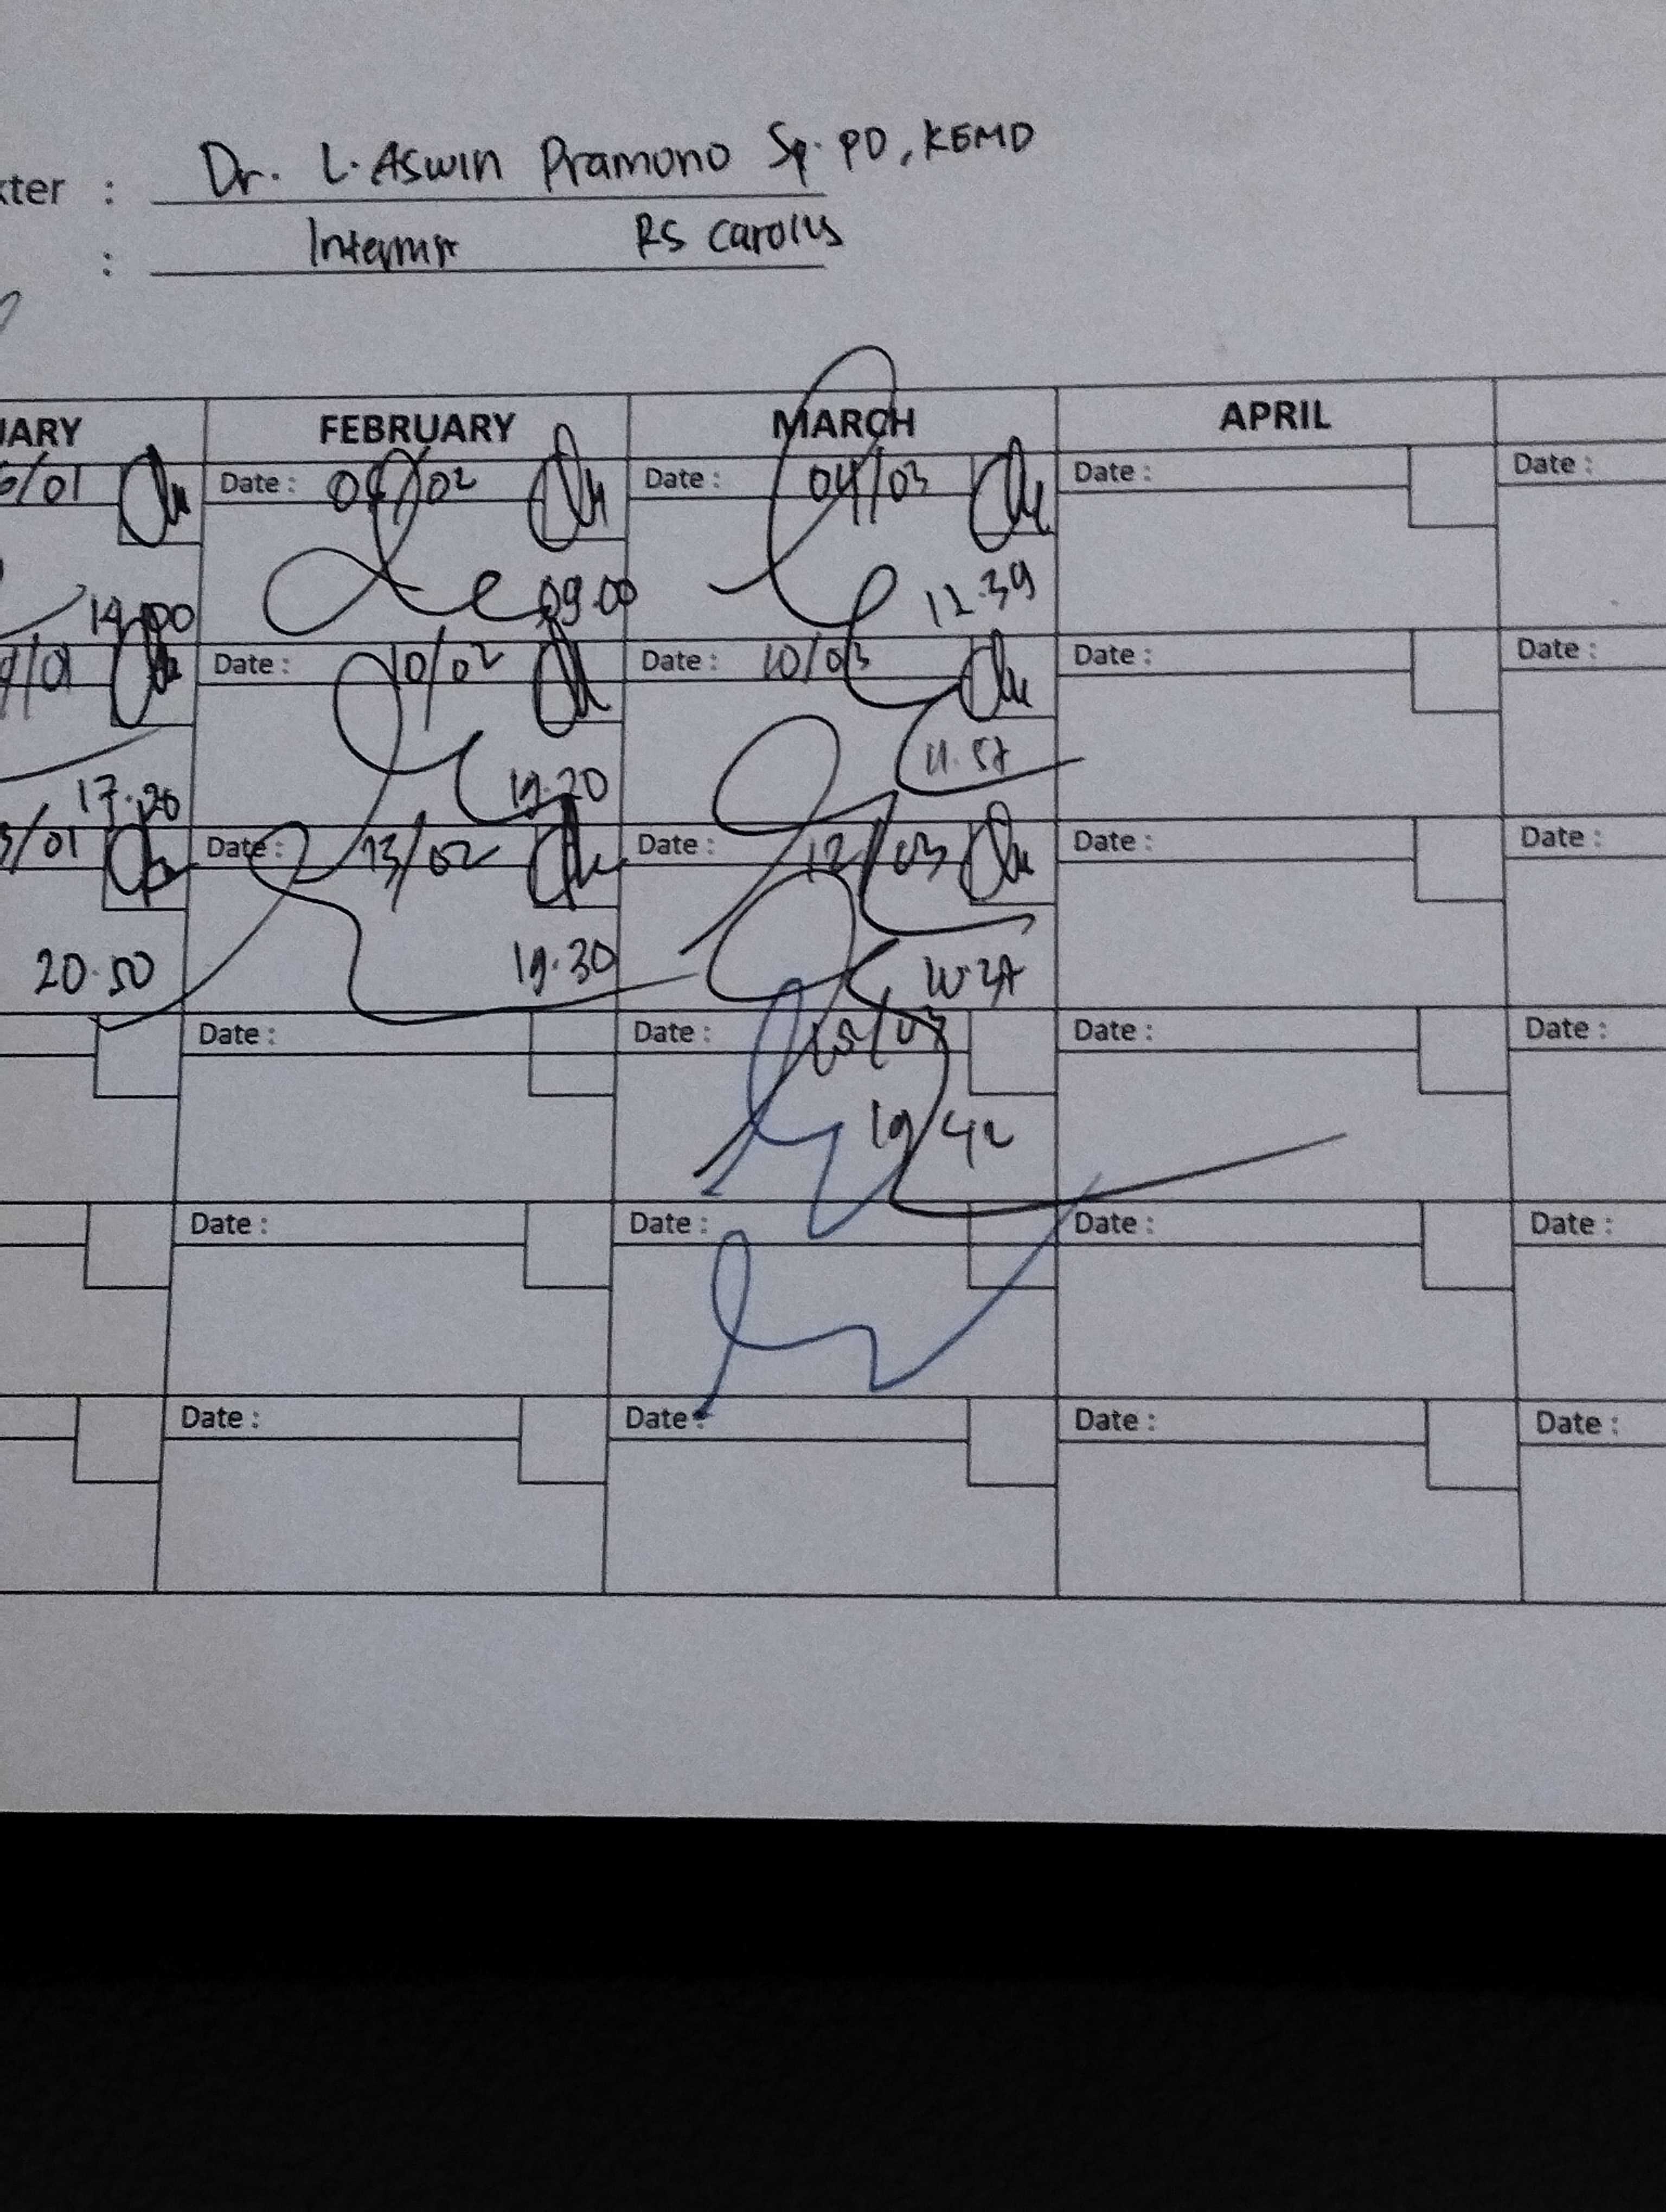 kter : Dr. L. Aswin Pramono Sp. PD, KEMD
: Internist RS Carolus
UARY FEBRUARY MARCH APRIL
/01 Date : /02 Date : 04/03 Date : Date :
14.00 09.00 12.39
/01 Date : 10/02 Date : 10/03 Date : Date :
17.20 19.20 11.57
/01 Date : 13/02 Date : 12/03 Date : Date :
20.50 19.30
Date : Date : Date : Date :
19 42
Date : Date : Date : Date :
Date : Date : Date : Date :